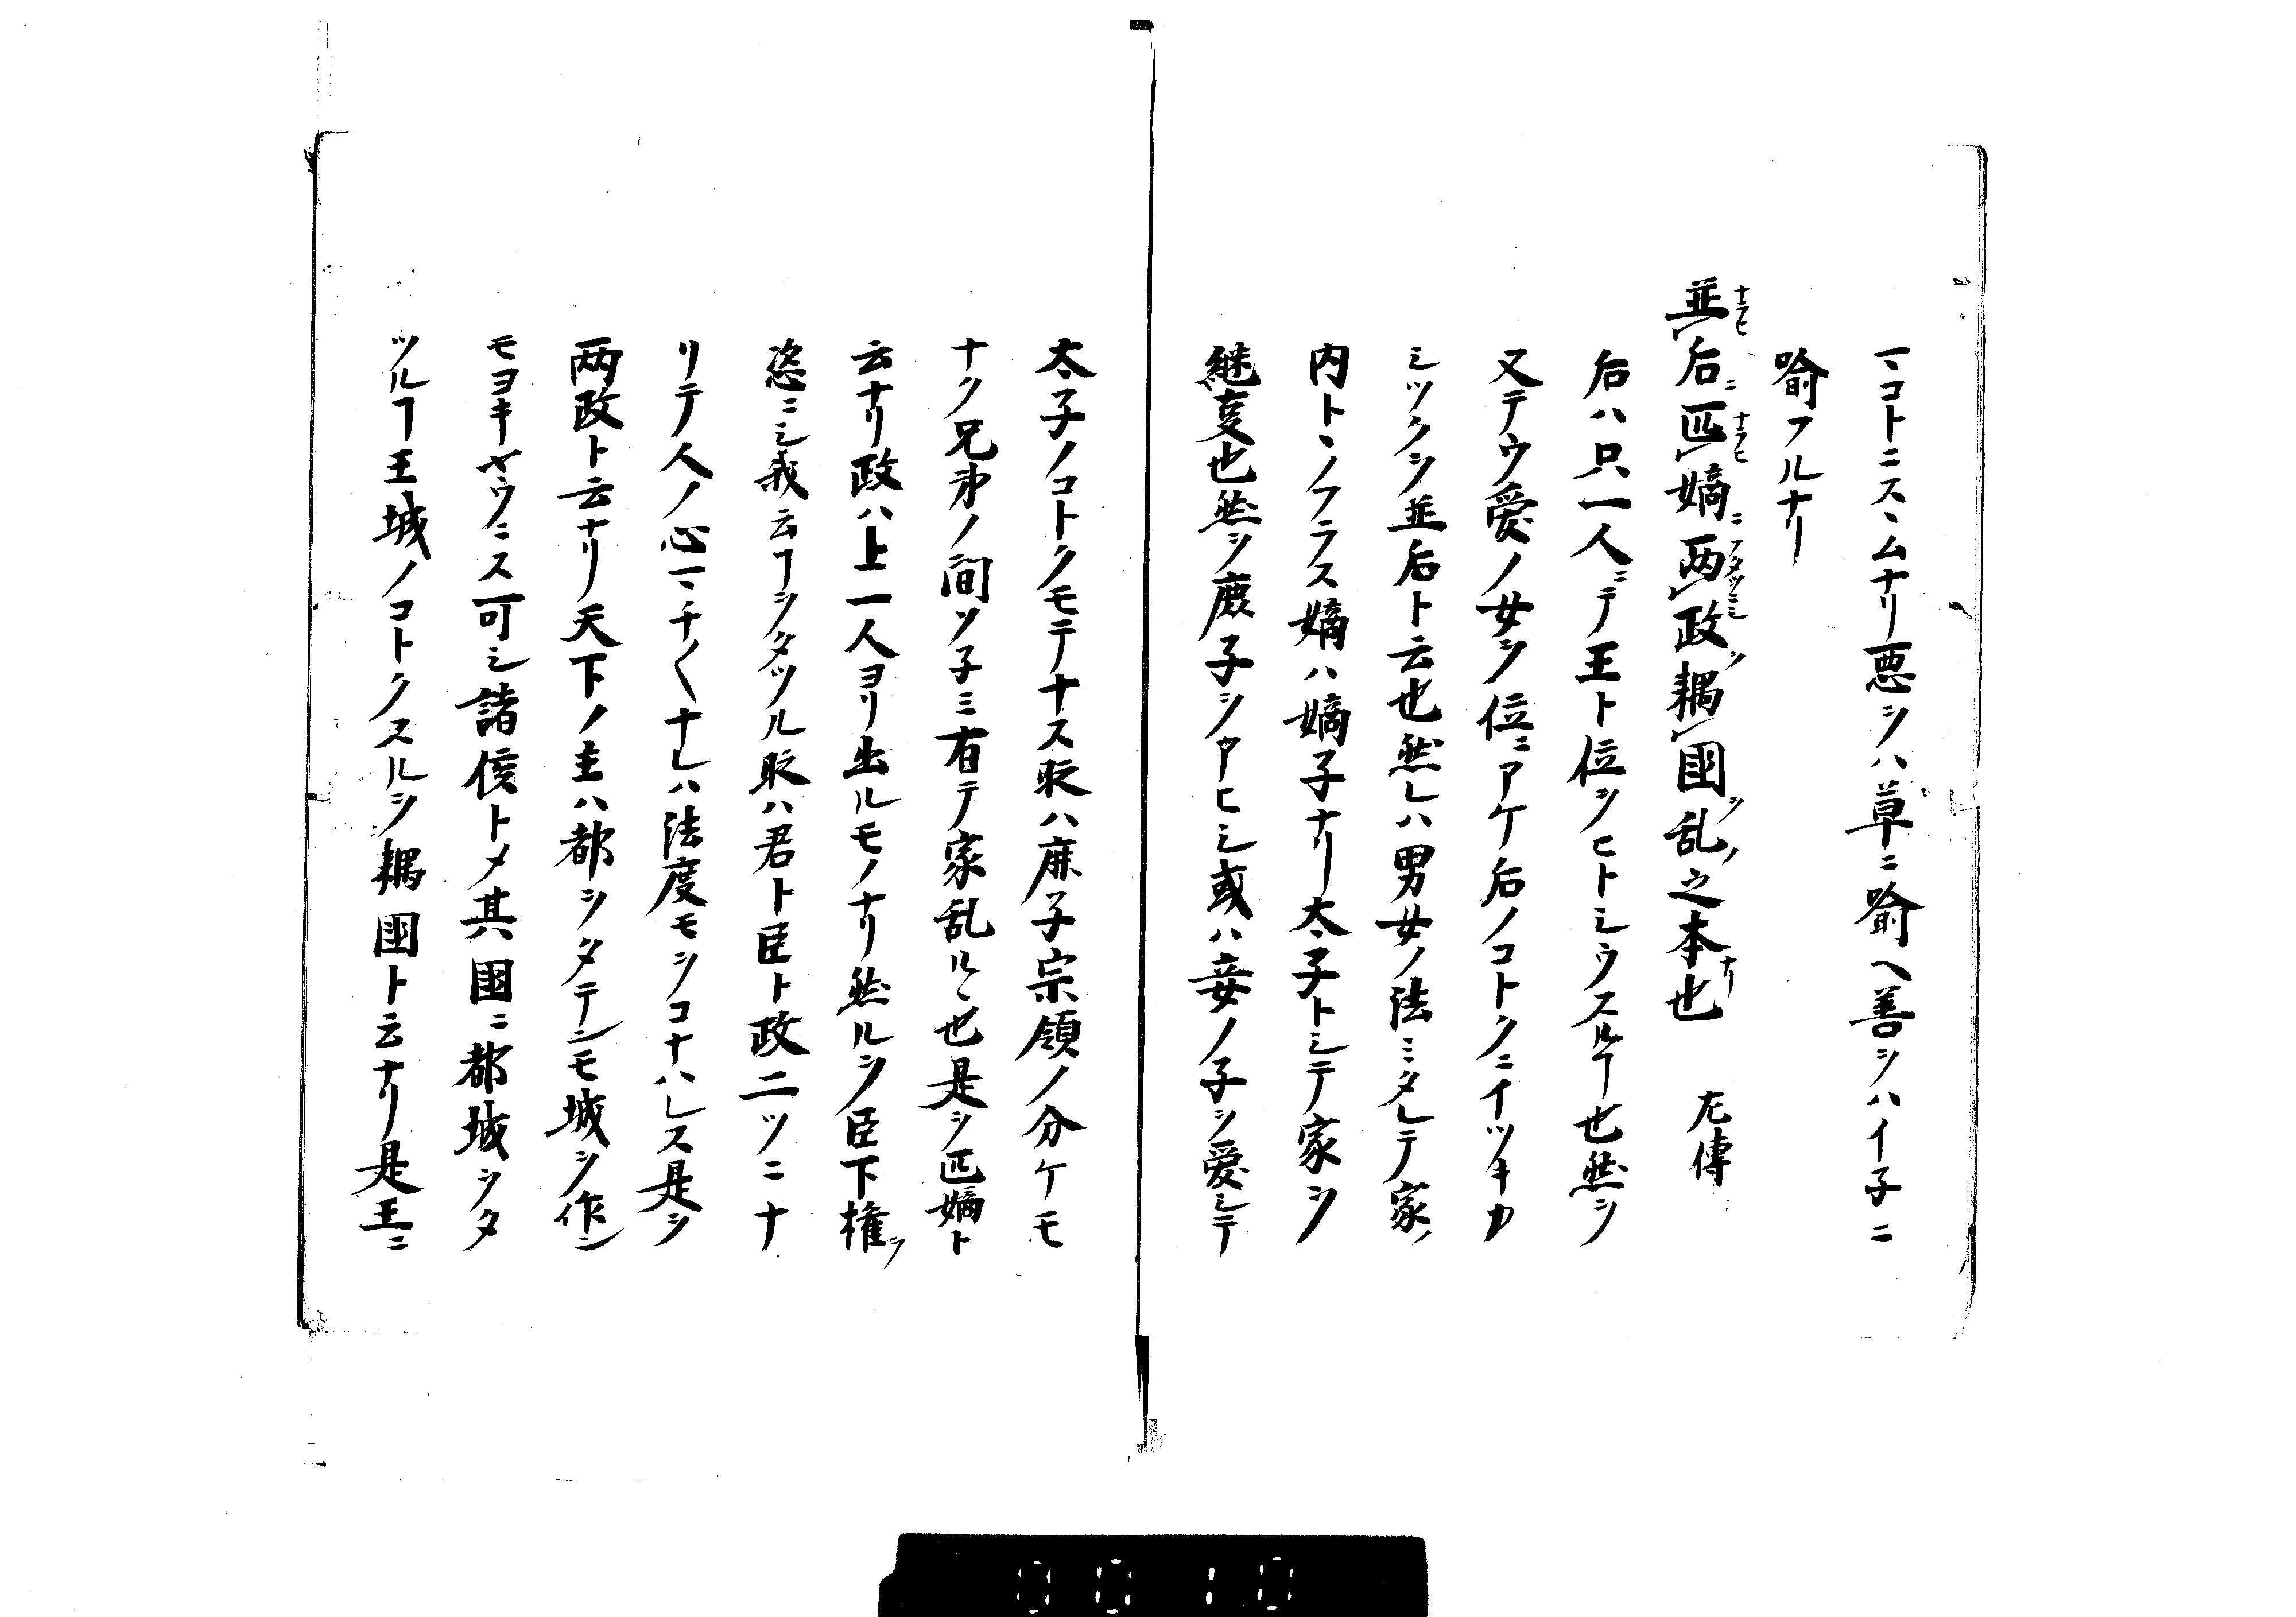 マコトニスヽムナリ悪ヲハ草ニ喩ヘ善ヲハイ子ニ
喩フルナリ
並后ニ匹嫡ニ両政シ耦國シ乱ノ之本也ナリ 左傳
后ハ只一人ニテ王ト位ヲヒトシウスルヿ也然ヲ
又テウ愛ノ女ヲ位ニアケ后ノコトクニイツキカ
シツクヲ並后ト云也然レハ男女ノ法ミタレテ家ノ
内トヽノフラス嫡ハ嫡子ナリ太子トシテ家ヲ
継夏也然ヲ庶子ヲアヒシ或ハ妾ノ子ヲ愛シテ
太子ノコトクモテナス時ハ庶子宗領ノ分ケモ
ナク兄弟ノ間ツ子ニ有テ家乱ルヽ也是ヲ匹嫡ト
云ナリ政ハ上一人ヨリ出ルモノナリ然ルヲ臣下権ヲ
恣ニシ我云ヿヲタツル時ハ君ト臣ト政二ツニナ
リテ人ノ心マチ〱ナレハ法度モヲコナハレス是ヲ
両政ト云ナリ天下ノ主ハ都ヲタテンモ城ヲ作ン
モヨキヤウニス可シ諸侯トメ其國ニ都城ヲタ
ツルヿ王城ノコトクスルヲ耦國ト云ナリ是王ニ
0010